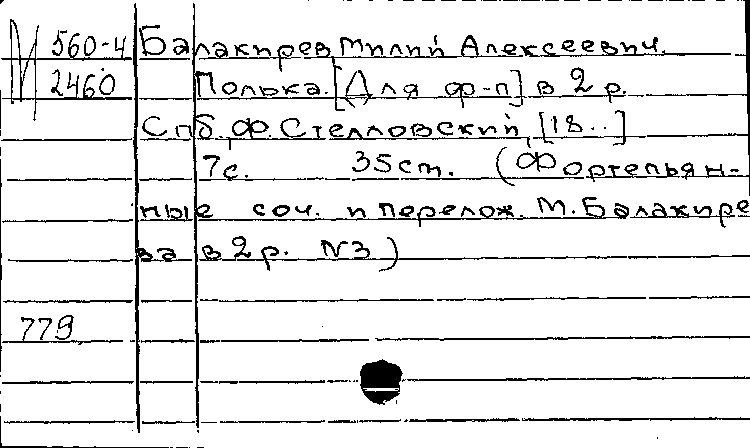 М 560-4 Балакирев, Милий Алексеевич.
2460 Полька. [Для ф-п] в 2 р.
Спб, Ф. Стелловский, [18..]
7с. 35 ст. (Фортепьян-
ные соч. и перелож. М. Балакире
ва в 2 р. N3)
779